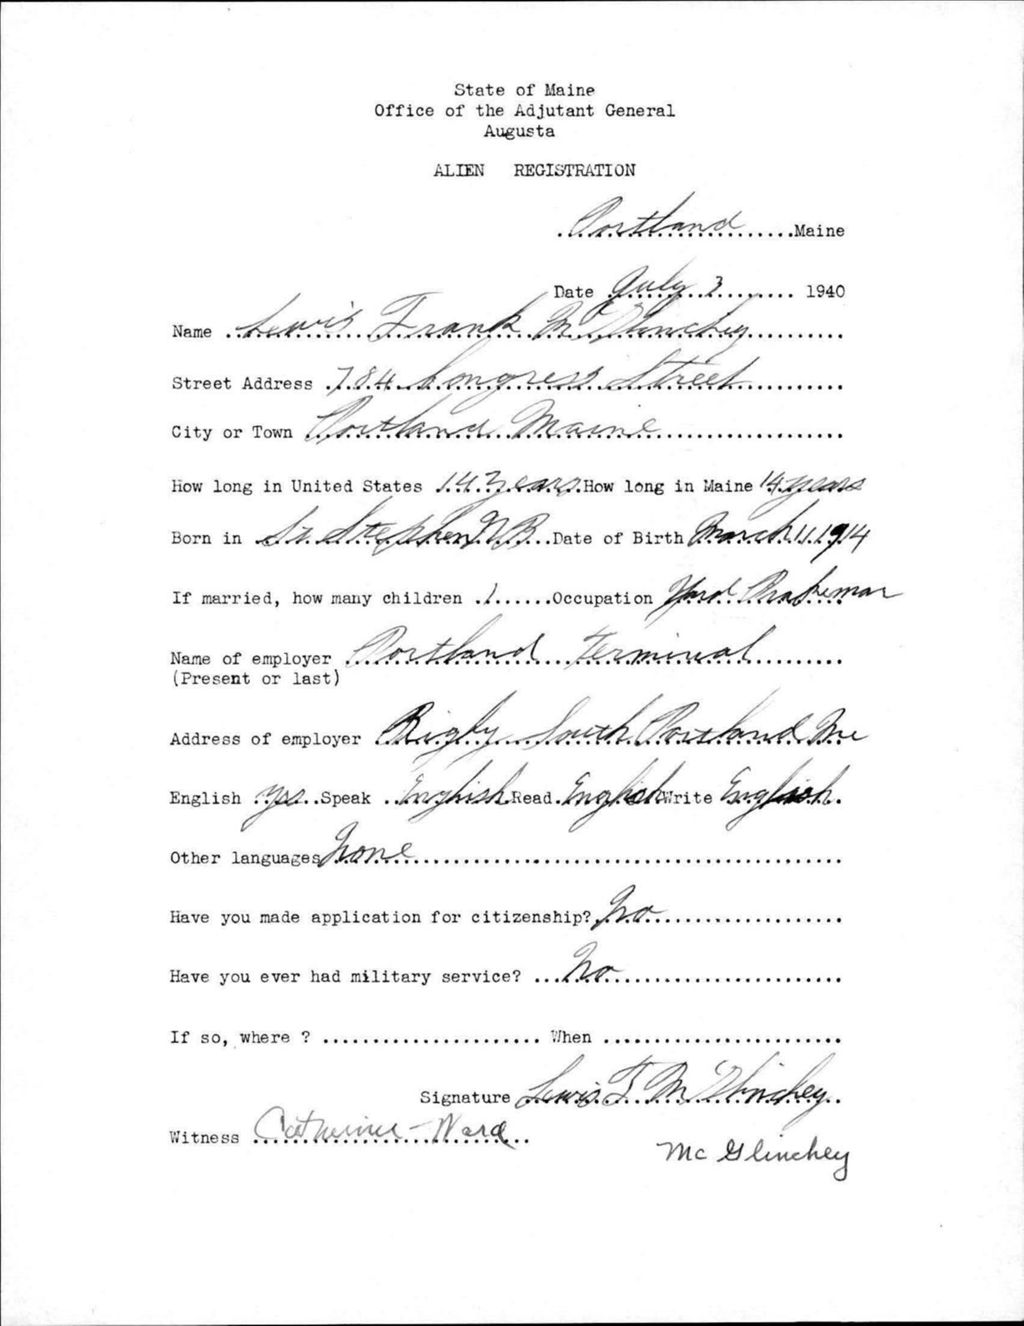 State of Maine
Office of the Adjutant General
Augusta
ALIEN REGISTRATION
Portland Maine
Date July 3 1940
Name Lewis Frank McGlinchey
Street Address 784 Congress Street
City or Town Portland Maine
How long in United States 14 years How long in Maine 14 years
Born in St. Stephen N B Date of Birth March 11, 1914
If married, how many children 1 Occupation Yard Brakeman
Name of employer Portland Terminal
(Present or last)
Address of employer Rigby South Portland Me
English yes Speak English Read English Write English
Other languages None
Have you made application for citizenship? No
Have you ever had military service? No
If so, where ? When
Signature Lewis F McGlinchey
Witness Catherine Ward
McGlinchey